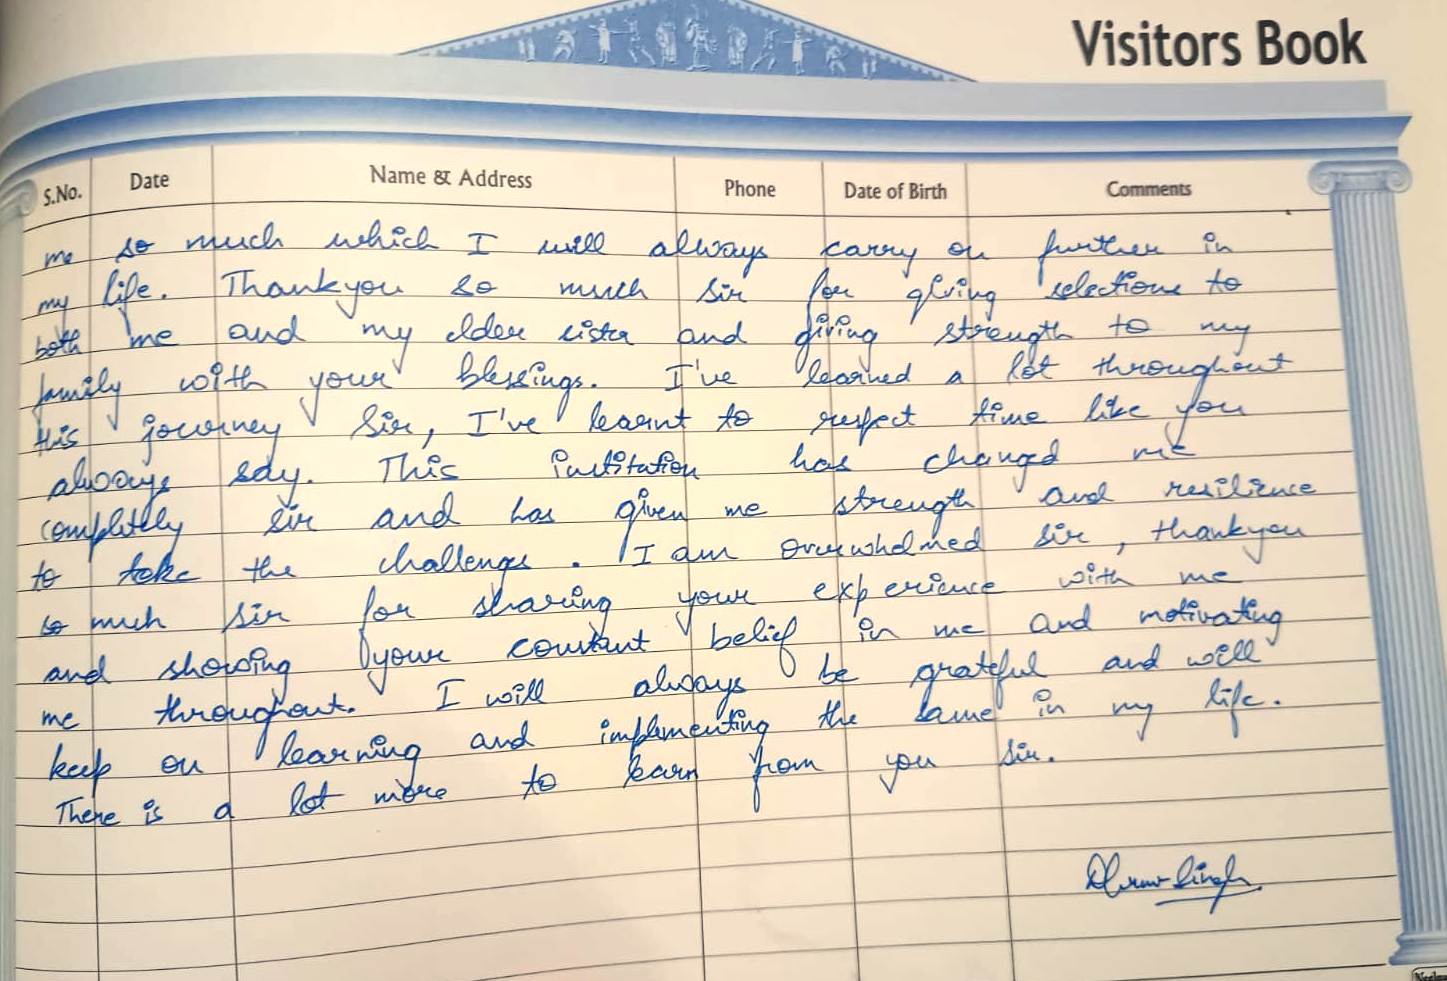 Visitors Book
S.No. Date Name & Address Phone Date of Birth Comments
me so much which I will always carry on further in
my life. Thankyou so much sir for giving selections to
both me and my elder sister and giving strength to my
family with your blessings. I've learned a lot throughout
this journey Sir, I've learnt to respect time like you
always say. This institution has changed me
completely sir and has given me strength and resilience
to take the challenge. I am overwhelmed sir, thankyou
so much sir for sharing your experience with me
and showing your constant belief in me and motivating
me throughout. I will always be grateful and will
keep on learning and implementing the same in my life.
There is a lot more to learn from you sir.
Singh